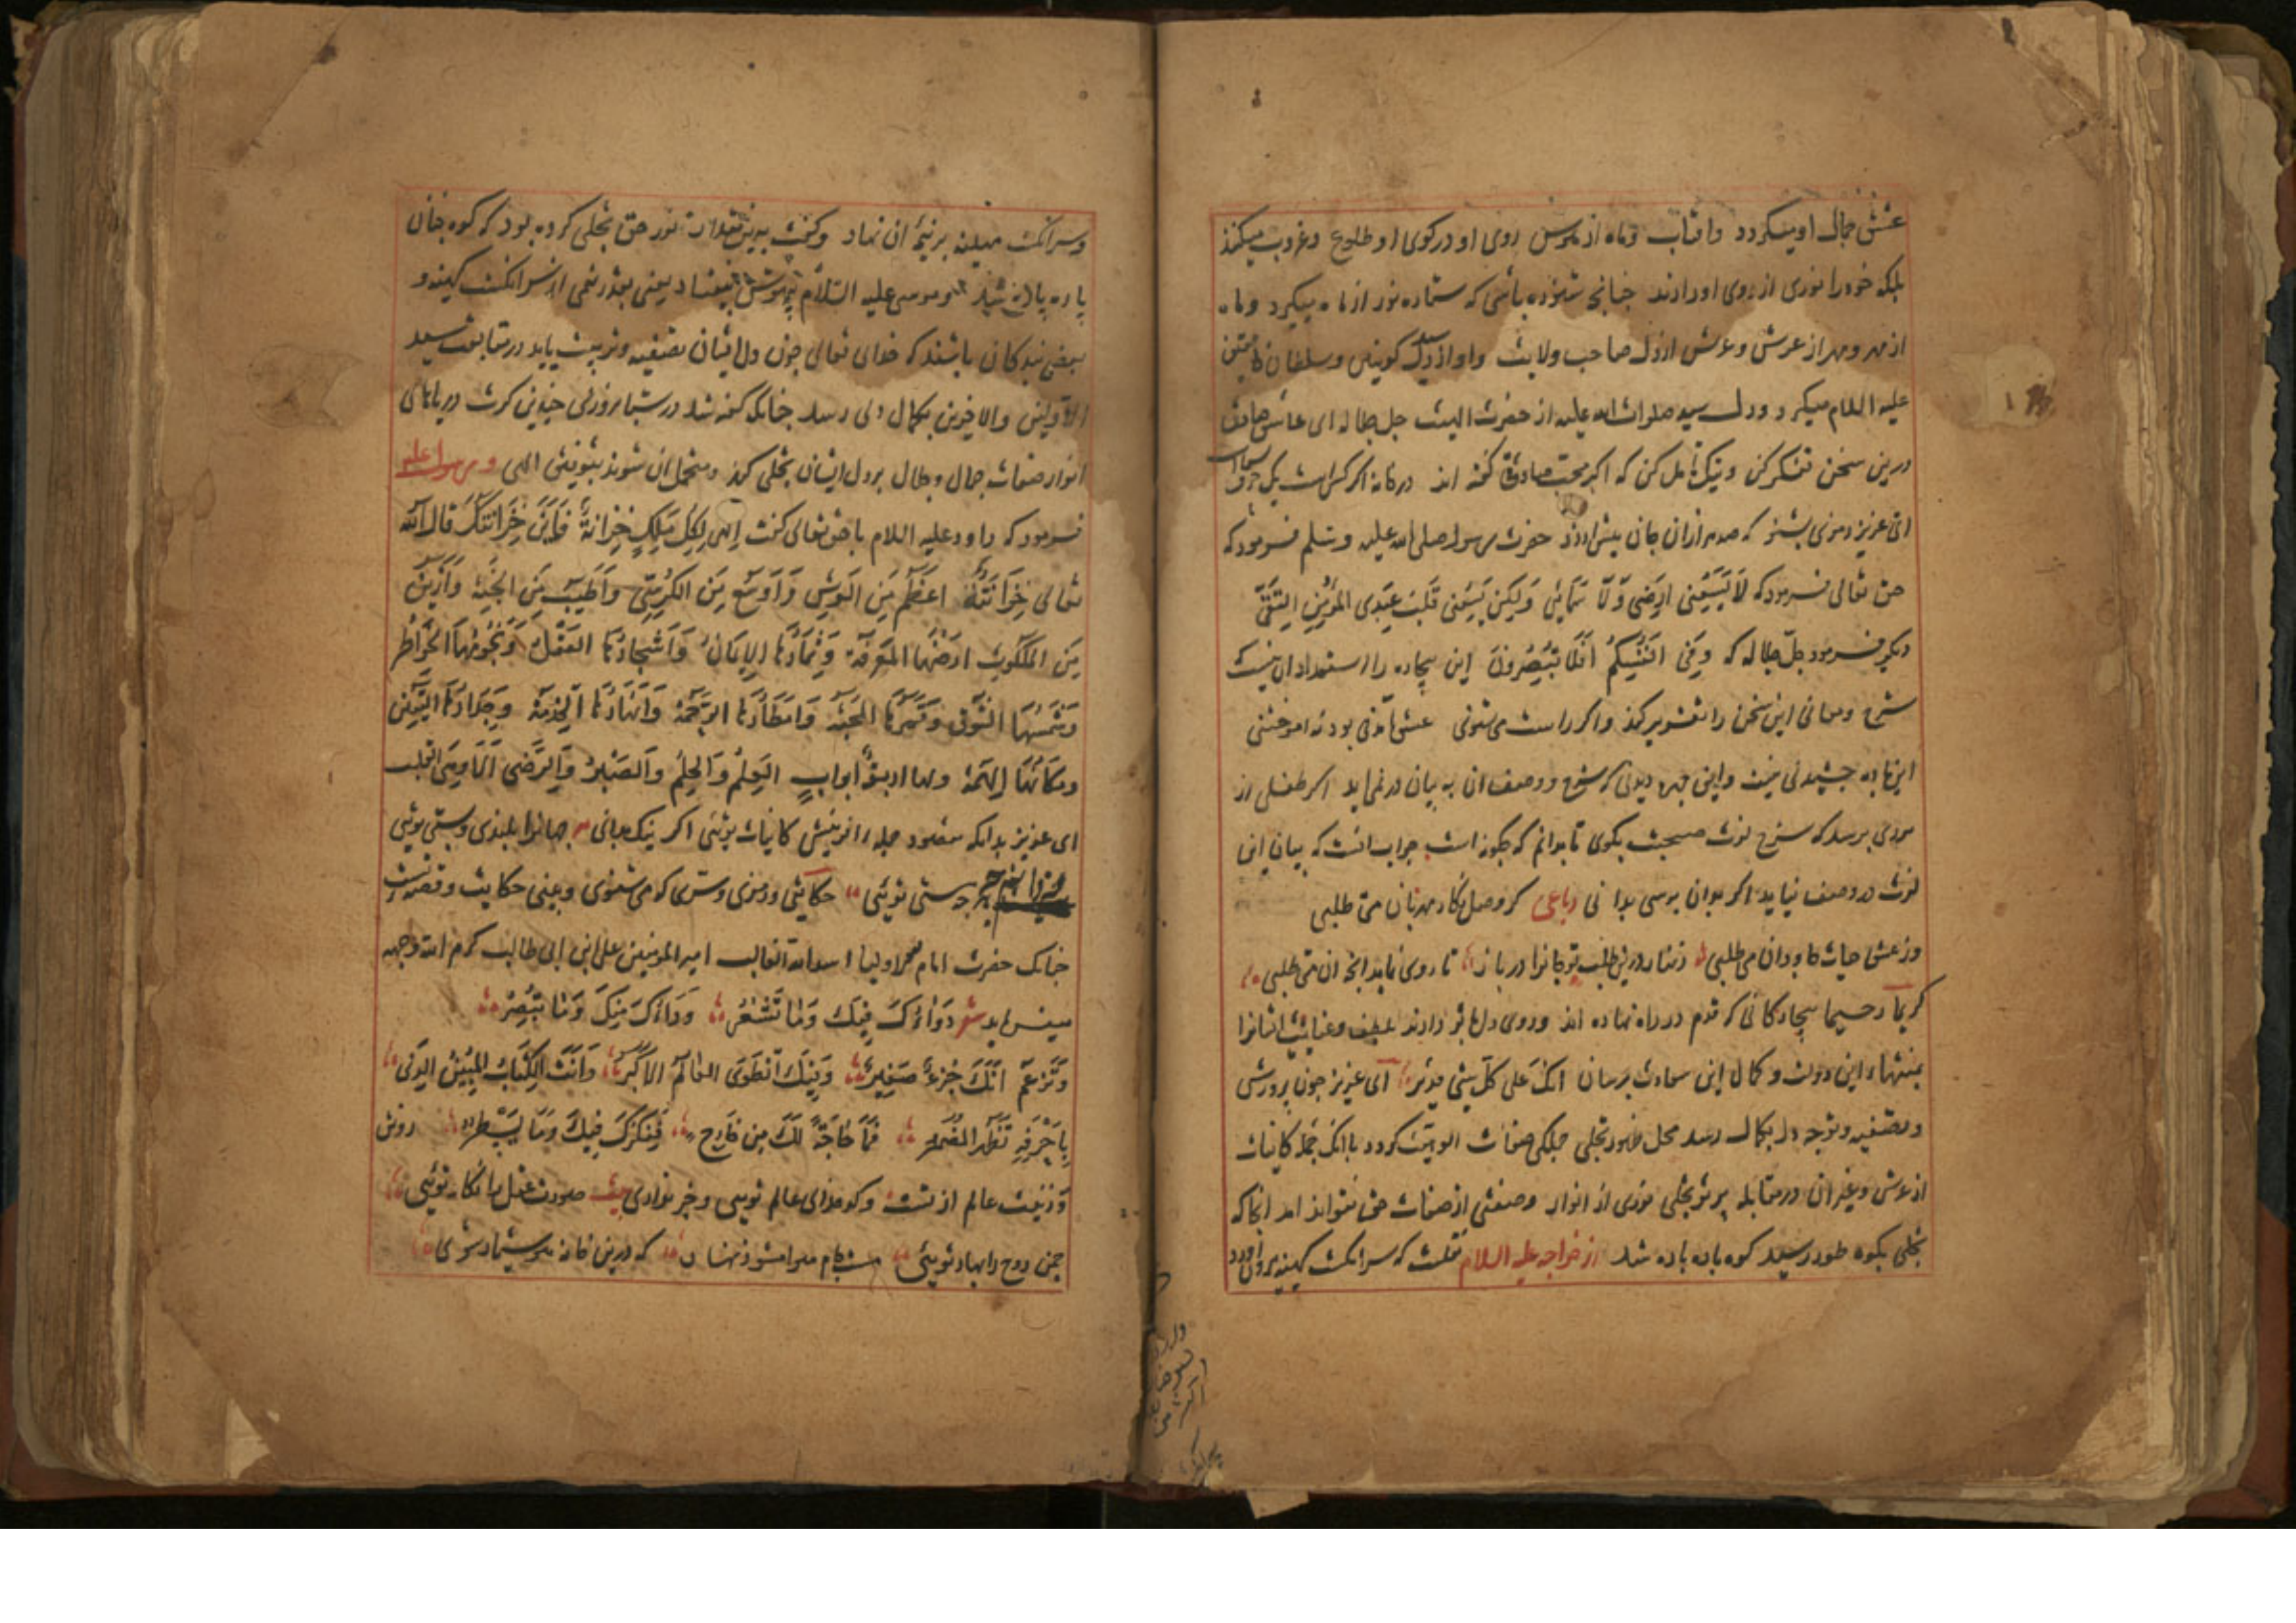 عشق جمال او میکردد و افتاب و ماه از هوس روی او در کوی او طلوع و غروب میکنند
بلکه خود را نوری از روی او دارند چنانچه شنوده باشی که ستاره نور از ماه میکیرد و ماه
از مهر و مهر از عرش و عرش از دل صاحب ولایت و او از دل سید کونین و سلطان
علیه السلام میکیرد و دل سید صلوات الله علیه از حضرت الهیت جل جلاله ای عاشق صادق
درین سخن تفکر کن و نیک تامل کن که اکر محب صادق کفته اند در خانه اکر کس است یک حرف بس است
ای عزیز رمزی بشنو که صد هزاران جان بیش ارزد حضرت رسول صلی الله علیه وسلم فرمود که
حق تعالی فرمود که لا یسعنی ارضی ولا سمائی ولکن یسعنی قلب عبدی المؤمن التقی
دیکر فرمود جل جلاله که وفی انفسکم افلا تبصرون این بیچاره را استعداد ان نیست
شرح و معانی این سخن را تقریر کند و اکر راست می شنوی عشق امدنی بود نه اموختنی
این باده چشیدنی نیست و این چهره دیدنی که شرح و وصف ان به بیان در نماید اکر طفلی از
مردی برسد که شرح لذت صحبت بکوی تا بدانم که چکونه است جواب انست که بیان این
لذت در وصف نیاید اکر بدان برسی بدانی رباعی کر وصل نکار مهربان می طلبی
وز عشق حیات جاودان می طلبی زنهار درین طلب تو جانرا در باز تا روی نماید انچه ان می طلبی
کریما رحیما بیچارکانی که قدم در راه نهاده اند و روی دل بتو دارند بلطف و عنایت ایشانرا
بمنتهاء این دولت و کمال این سعادت برسان انک علی کل شیء قدیر ای عزیز چون پرورش
و تصفیه و توجه دل بکمال رسد محل ظهور تجلی جملکی صفات الوهیت کردد با انکه جمله کاینات
از عرش و غیر ان در مقابله پرتو تجلی نوری از انوار و صفتی از صفات حق نتواند امد انجا که
تجلی بکوه طور رسید کوه پاره پاره شد از خواجه علیه السلام نقلست که سر انکشت کهینه بیرون اورد
و سر انکشت مهینه بر نیمهٔ ان نهاد و کفت بدین مقدار نور حق تجلی کرده بود که کوه چنان
پاره پاره شد و موسی علیه السلام بیهوش بیفتاد یعنی بقدر نیمی از سر انکشت کهینه و
بعضی بندکان باشند که خدای تعالی چون دل ایشان تصفیه و تربیت یابد در متابعت سید
الاولین والاخرین بکمال دلی رسد چنانکه کفته شد در شبانروزی چندین کرت دریاهای
انوار صفات جمال و جلال بر دل ایشان تجلی کند و متحمل ان شوند بتوفیق الهی و رسول علیه
فرمود که داود علیه السلام با حق تعالی کفت الهی لکل ملک خزانة فاین خزانتک قال الله
تعالی خزانتی اعظم من العرش واوسع من الکرسی واطیب من الجنة وازین
من الملکوت ارضها المعرفة وثمارها الایمان واشجارها العقل ونجومها الخواطر
وشمسها الشوق وقمرها المحبة وامطارها الرحمة وانهارها الخدمة وجدارها الیقین
ومکانها الهمة ولها اربعة ابواب العلم والحلم والصبر والرضی الا وهی القلب
ای عزیز بدانکه مقصود جمله افرینش کاینات توئی اکر نیک بدانی جهانرا بلندی و پستی توئی
هر چه هستی توئی حکایتی و رمزی و سری که می شنوی و بینی حکایت و قصه تست
چنانکه حضرت امام اولیا اسد الله الغالب امیر المومنین علی ابن ابی طالب کرم الله وجهه
میفرماید شعر دوائک فیک وما تشعر وداءک منک وما تبصر
وتزعم انک جزء صغیر وفیک انطوی العالم الاکبر وانت الکتاب المبین الذی
باحرفه تظهر المضمر فما حاجة لک من خارج ففکرک فیک وما یسطر روش
و زینت عالم از تست و کدخدای عالم توئی و خبر نداری بیت صورت عقل را نکار توئی
چمن روح را بهار توئی مشو پنهان که درین خانه